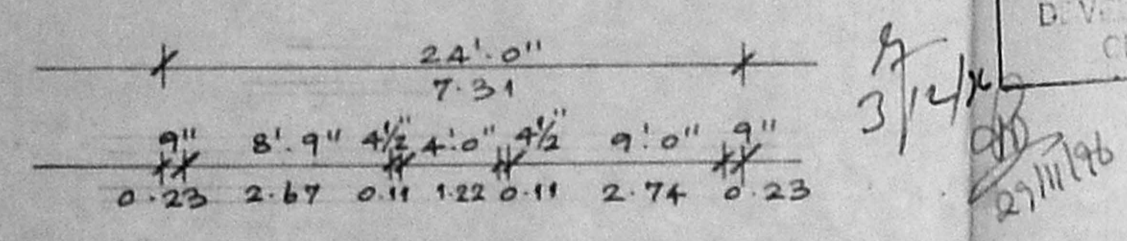 24'.0"
7.31
9" 8'.9" 4½" 4'.0" 4½" 9'.0" 9"
0.23 2.67 0.11 1.22 0.11 2.74 0.23
3/12/
29/11/96
D. V